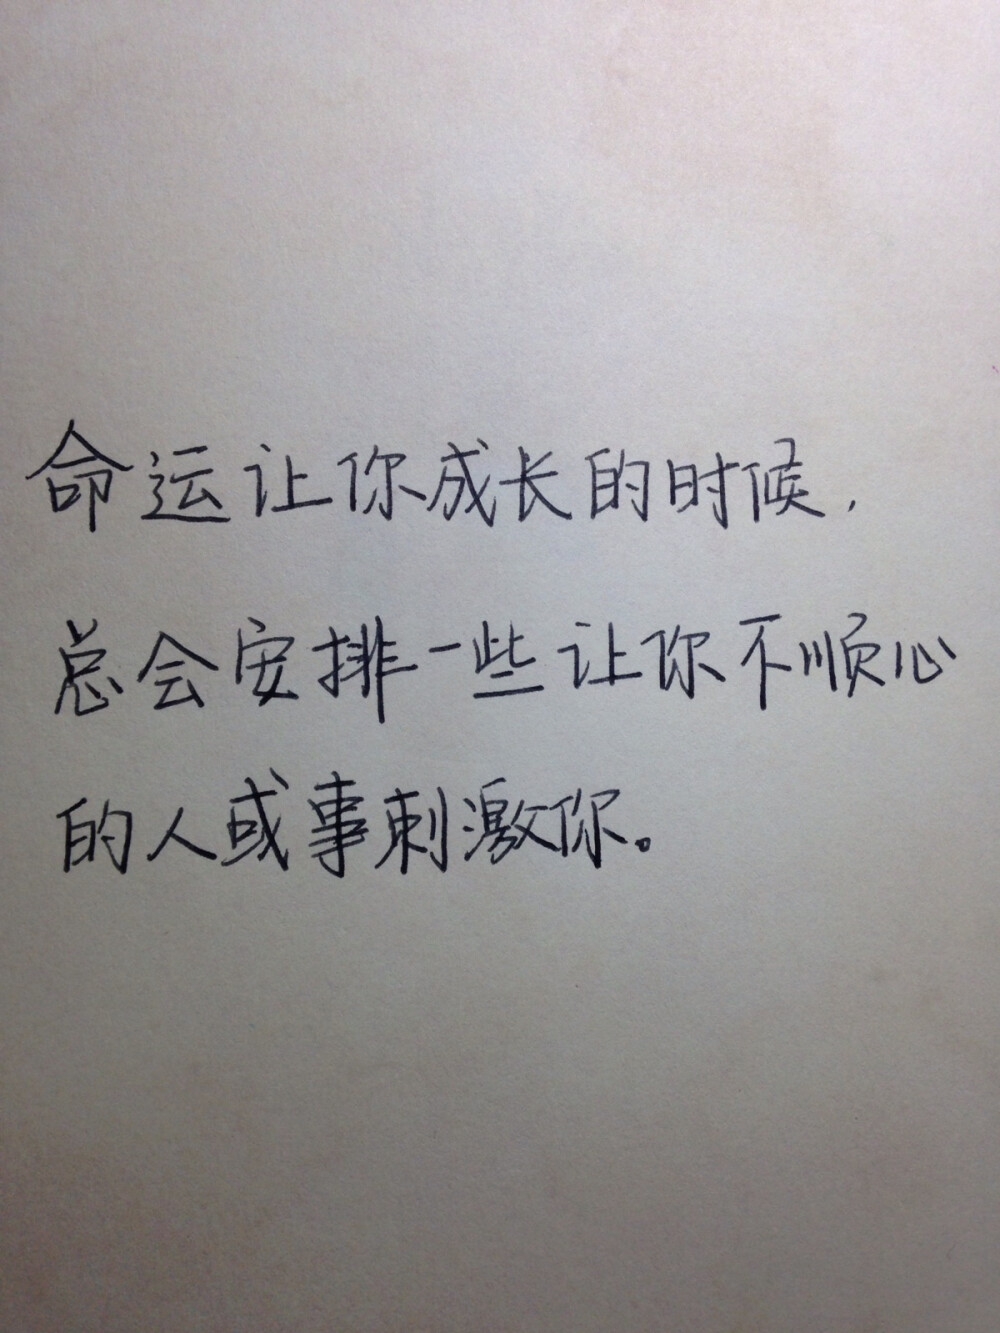 命运让你成长的时候，
总会安排一些让你不顺心
的人或事刺激你。